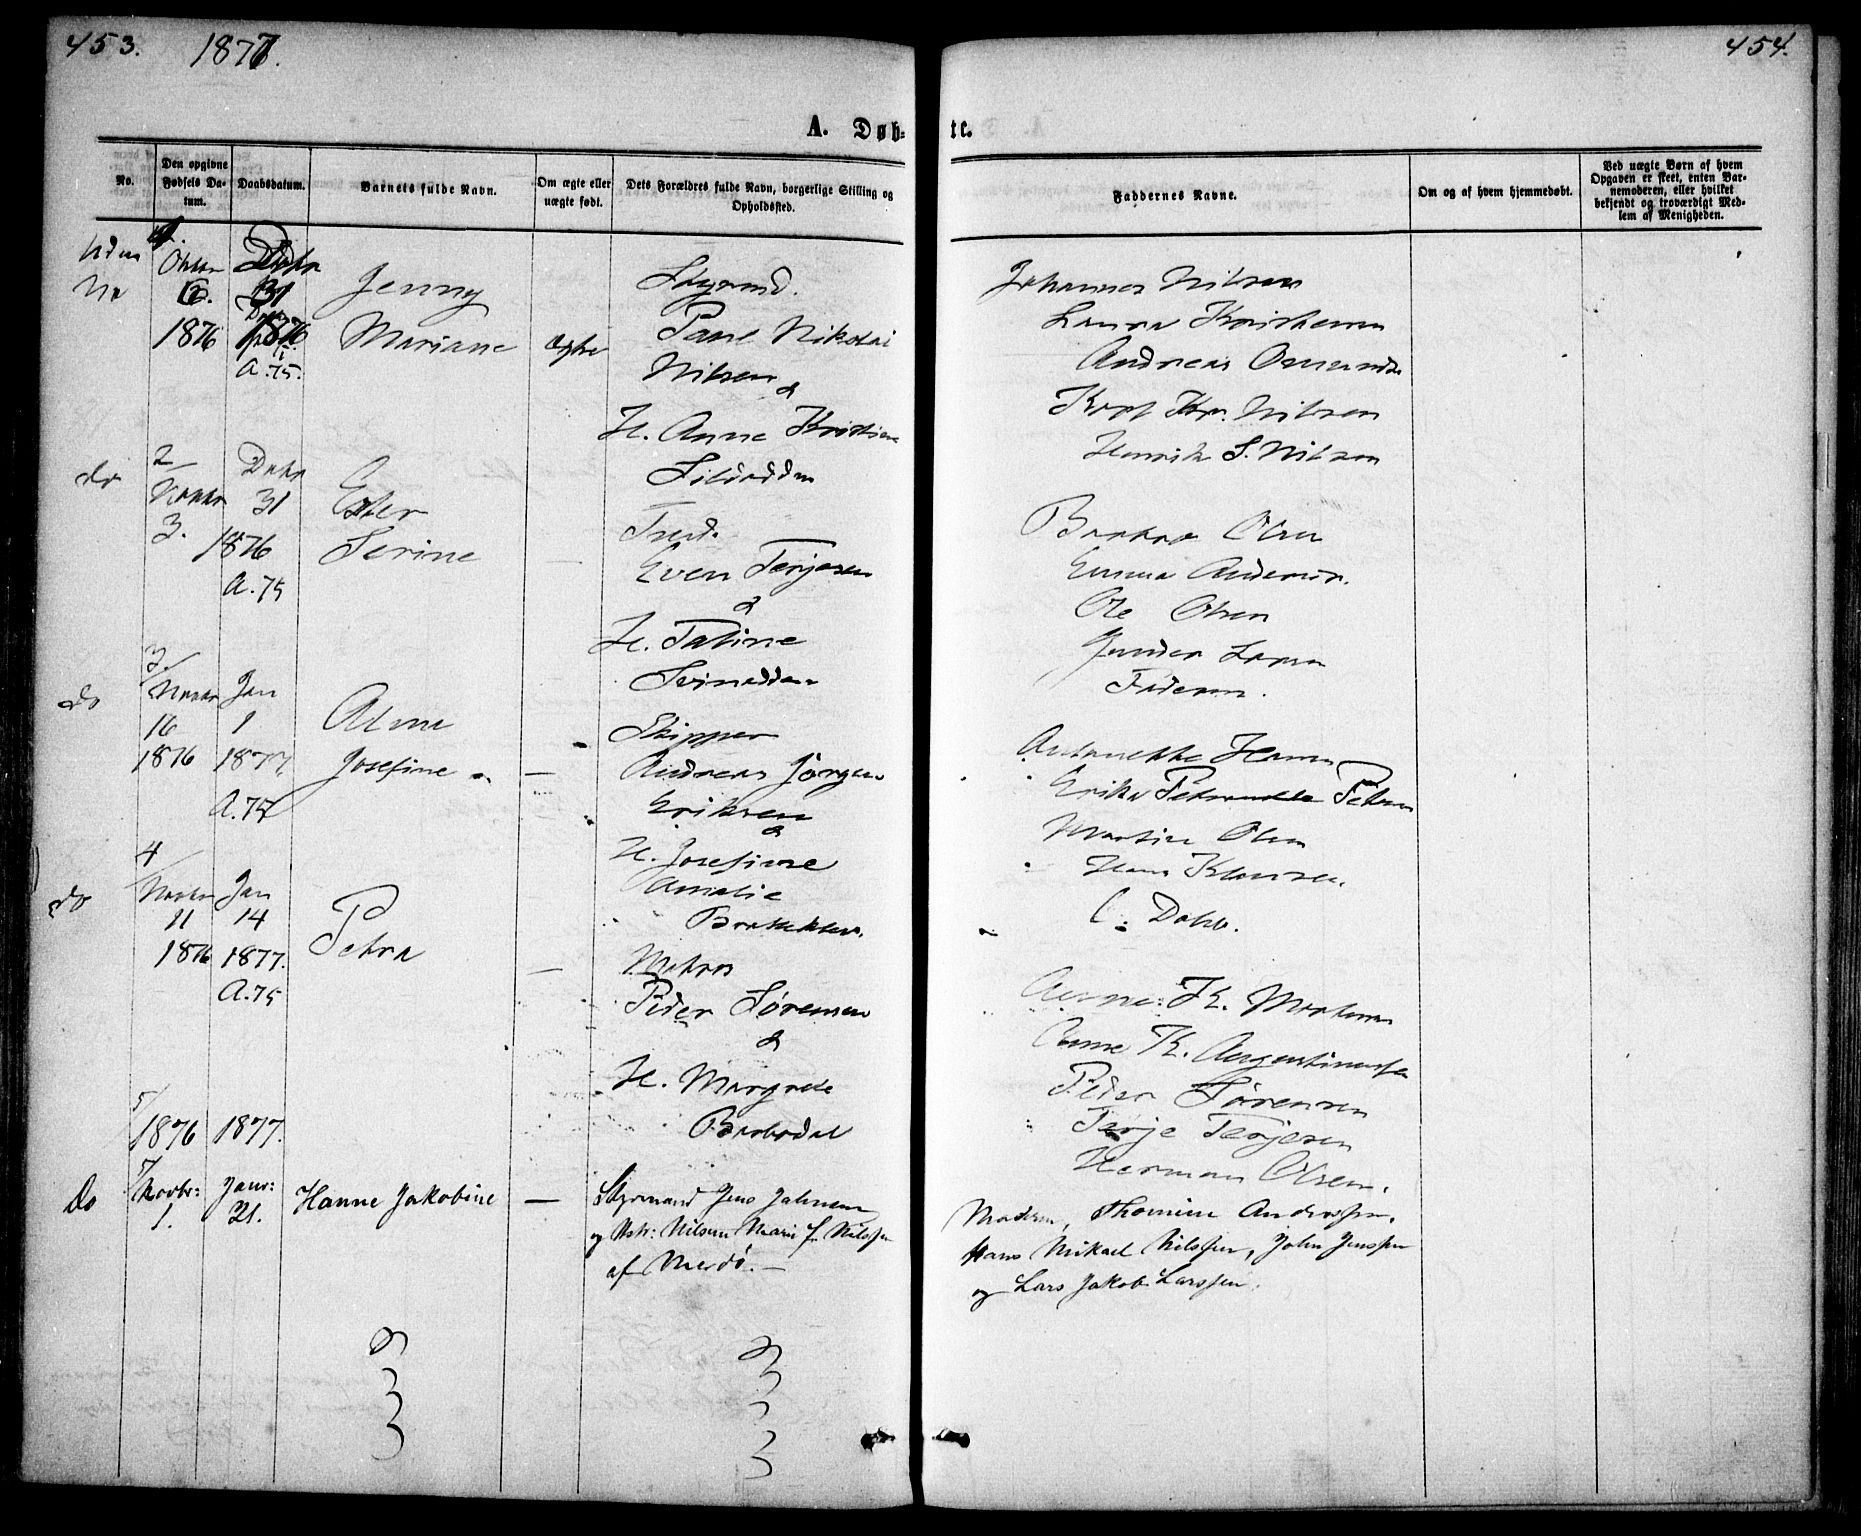 453. 1877.
454.
A. Døb-
te.
No.
Den opgivne Fødsels Datum.
Daabsdatum.
Barnets fulde Navn.
Om ægte eller uægte født.
Dets Forældres fulde Navn, borgerlige Stilling og Opholdssted.
Faddernes Navne.
Om og af hvem hjemmedøbt.
Ved uægte Børn af hvem Opgaven er skeet, enten Barnemoderen, eller hvilket bekjendt og troværdigt Medlem af Menigheden.
Uden
No
1.
6.
1876
31
1876
A. 75.
Jenny
Mariane
Ægte
Styrmd.
Paul Nikolai
Nilsen
&
H. Anne Kristine
Johannes Nilsen
Laura Kristensen
Andreas Osmunds
Nilsen
Henrik S. Nilsen
do
2
Novbr
3.
Decbr
31
1876
A. 75
Ester
Serine
Even Terjesen
&
H. Taline
Olsen
Emma Andersen.
Ole Olsen
Gunder Larsen
Faderen.
do
3.
Novbr
16
1876
Jan
1
1877.
A. 75
Alma
Josefine
—
Skipper
Andreas Jørgen
Eriksen
&
H. Josefine
Amalie
Antonette Hansen
Erika Petersen
Olsen
Hans Klausen.
C. Dahl.
do
4
Novbr
11
1876
Jan
14
1877.
A. 75
Petra
—
Matros
Peder Sørensen
&
H. Margrete
Anne K. Mortensen
Anne K. Augustinussen
Peder Sørensen
Terje Terjesen
Herman Olsen.
5/
1876 1877.
Do
5/
Novbr:
1.
Janr:
21.
Hanne Jakobine
—
Styrmand Jens Johnsen
og Hstr: Nilsine Marie f. Nilssen
af Merdø. —
Moderen, Thomine Anderssen,
Hans Mikael Nilssen, John Jenssen
og Lars Jakob Larssen.